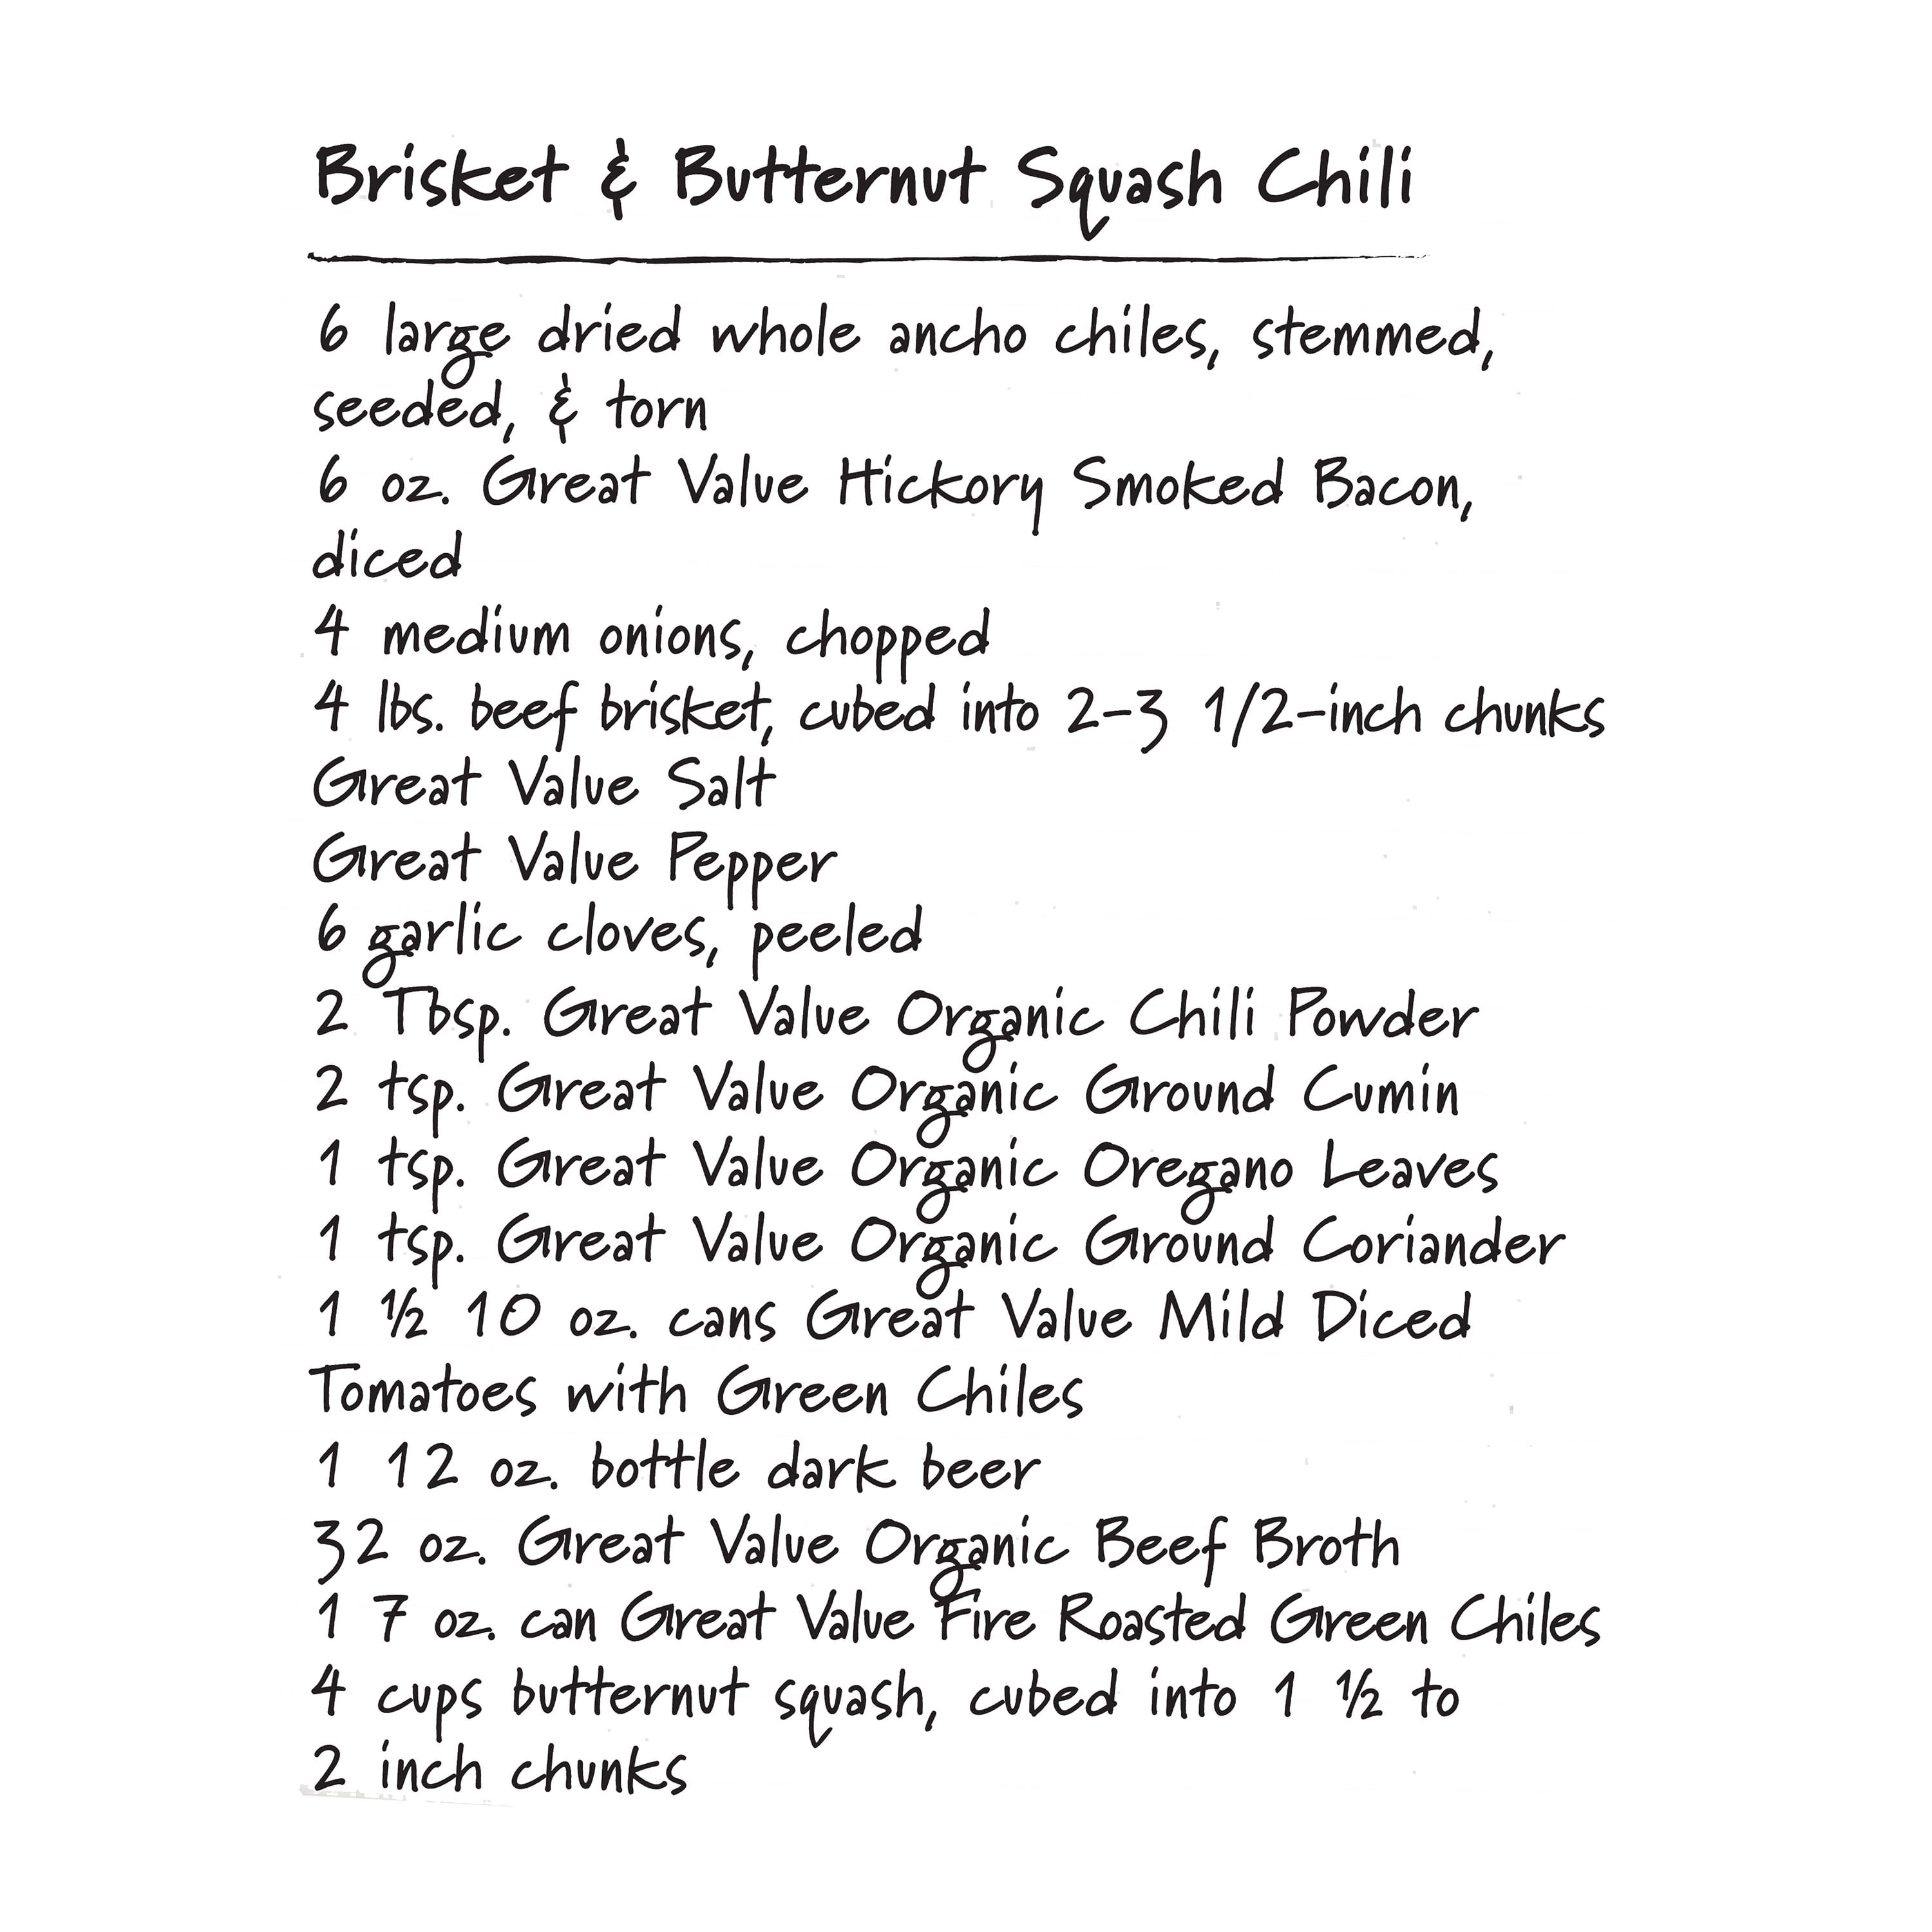 Brisket & Butternut Squash Chili
6 large dried whole ancho chiles, stemmed,
seeded, & torn
6 oz. Great Value Hickory Smoked Bacon,
diced
4 medium onions, chopped
4 lbs. beef brisket, cubed into 2-3 1/2-inch chunks
Great Value Salt
Great Value Pepper
6 garlic cloves, peeled
2 Tbsp. Great Value Organic Chili Powder
2 tsp. Great Value Organic Ground Cumin
1 tsp. Great Value Organic Oregano Leaves
1 tsp. Great Value Organic Ground Coriander
1 ½ 10 oz. cans Great Value Mild Diced
Tomatoes with Green Chiles
1 12 oz. bottle dark beer
32 oz. Great Value Organic Beef Broth
1 7 oz. can Great Value Fire Roasted Green Chiles
4 cups butternut squash, cubed into 1 ½ to
2 inch chunks